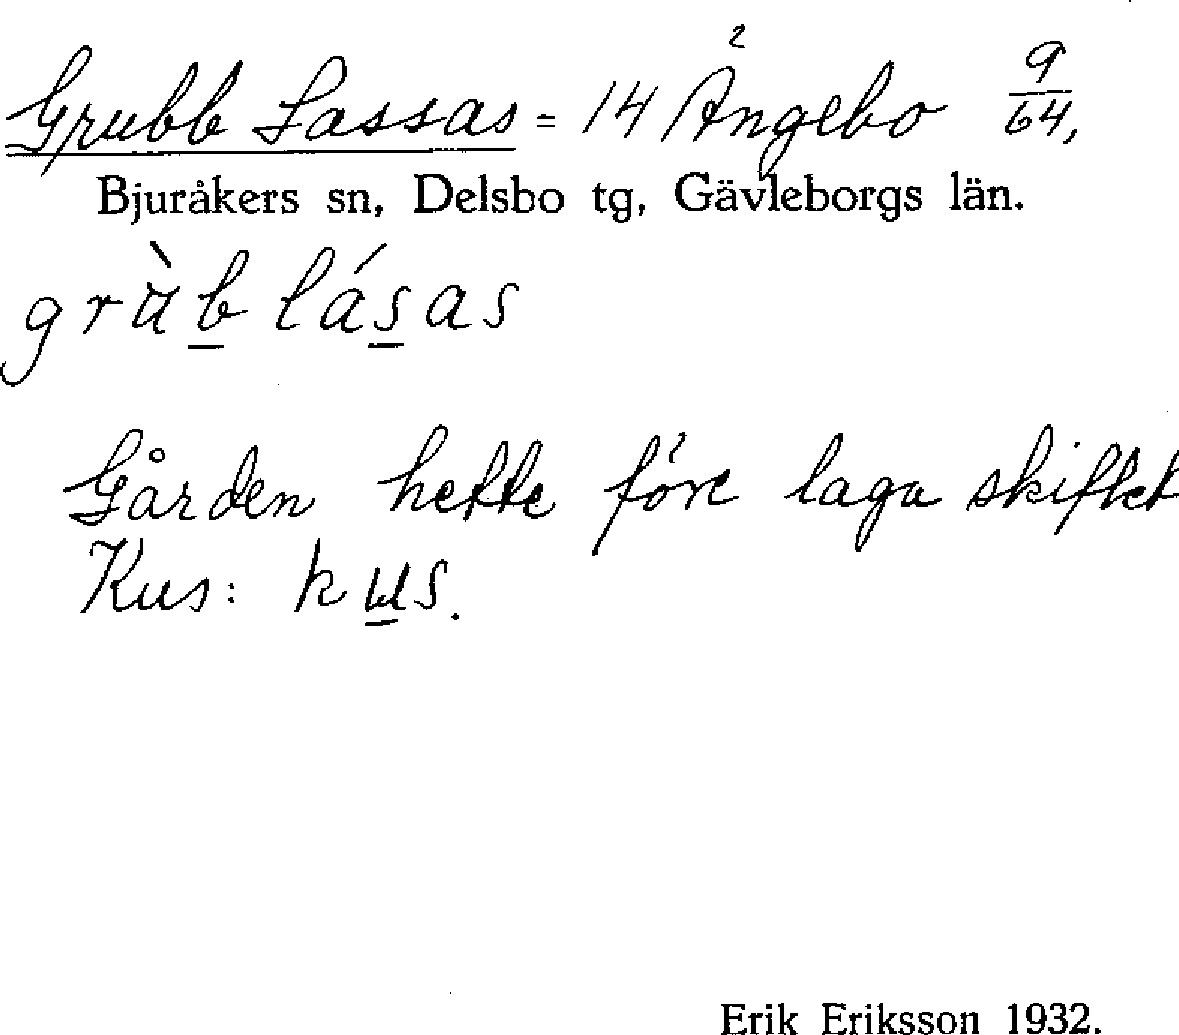 Grubb Lassas = 14 Ängebo 9/64,
Bjuråkers sn, Delsbo tg, Gävleborgs län.
grùb lásas
Gården hette före laga skiftet
Kus: kus.
Erik Eriksson 1932.